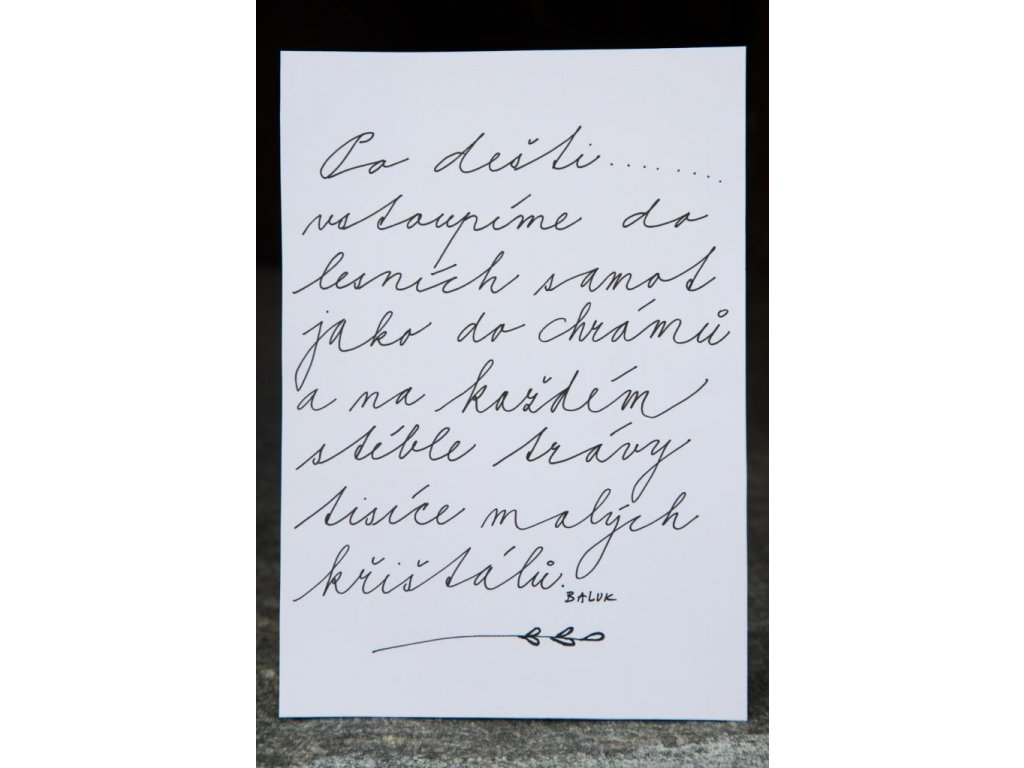 Po dešti........
vstoupíme do
lesních samot
jako do chrámů
a na každém
stéble trávy
tisíce malých
křištálů.
BALUK